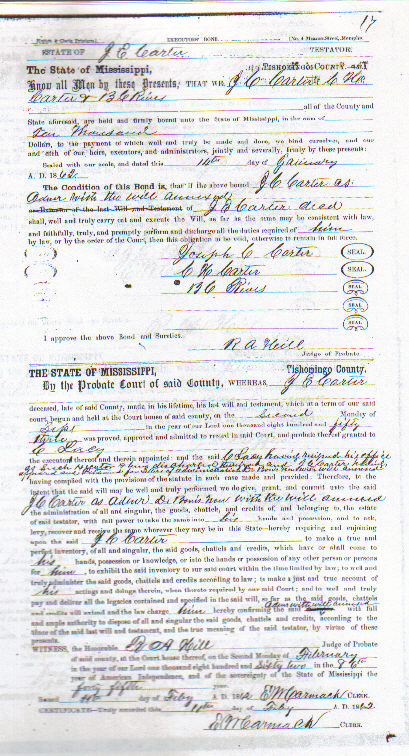 17
EXECUTORS' BOND.
ESTATE OF J E Carter TESTATOR.
The State of Mississippi, TISHOMINGO COUNTY.
Know all Men by these Presents, THAT WE J C Carter C H
Carter & B C Rives
all of the County and
State aforesaid, are held and firmly bound unto the State of Mississippi, in the sum of
Ten Thousand
Dollars, to the payment of which well and truly be made and done, we bind ourselves, and our
and each of our heirs, executors, and administrators, jointly and severally, firmly by these presents:
Sealed with our seals, and dated this 14th day of January
A. D. 1862
The Condition of this Bond is, that if the above bound J C Carter as
Admr with the will annexed
as Executor of the last Will and Testament of J E Carter decd
shall, well and truly carry out and execute the Will, as far as the same may be consistent with law,
and faithfully, truly, and promptly perform and discharge all the duties required of him
by law, or by the order of the Court, then this obligation to be void, otherwise to remain in full force.
Joseph C Carter SEAL.
C H Carter SEAL.
B C Rives SEAL
SEAL
SEAL
I approve the above Bond and Sureties.
R A Hill
Judge of Probate.
THE STATE OF MISSISSIPPI, Tishomingo County.
By the Probate Court of said County, WHEREAS, J E Carter
deceased, late of said County, made in his lifetime, his last will and testament, which at a term of our said
court, begun and held at the Court house of said county, on the Second Monday of
Sept in the year of our Lord one thousand eight hundred and fifty
was proved, approved and admitted to record in said Court, and probate thereof granted to
C Lacy
the executor thereof and therein appointed: and the said C Lacy having resigned his office
having complied with the provisions of the statute in such case made and provided: Therefore, to the
intent that the said will may be well and truly performed we do give, grant, and commit unto the said
J C Carter as Admr De bonis non with the will annexed
the administration of all and singular, the goods, chattels, and credits of, and belonging, to the estate
of said testator, with full power to take the same into his hands and possession, and to ask,
levy, recover and receive the same wherever they may be in this State—hereby requiring and enjoining
upon the said J C Carter to make a true and
perfect inventory, of all and singular, the said goods, chattels and credits, which have or shall come to
his hands, possession or knowledge, or into the hands or possession of any other person or persons
for him, to exhibit the said inventory to our said court within the time limited by law; to well and
truly administer the said goods, chattels and credits according to law; to make a just and true account of
his actings and doings therein, when thereto required by our said Court; and to well and truly
pay and deliver all the legacies contained and specified in the said will, so far as the said goods, chattels
and credits will extend and the law charge him hereby confirming the said Admr with will annexed with full
and ample authority to dispose of all and singular the said goods, chattels and credits, according to the
tenor of the said last will and testament, and the true meaning of the said testator, by virtue of these
presents.
WITNESS, the Honorable R A Hill Judge of Probate
of said county, at the Court house thereof, on the Second Monday of February
in the year of our Lord one thousand eight hundred and Sixty two in the 86th
year of American Independence, and of the sovereignty of the State of Mississippi the
forty fifth
Issued day of Feby A. D. 1862 E McCarmack CLERK.
CERTIFICATE—Truly recorded this day of Feby A. D. 1862
E McCarmack CLERK.